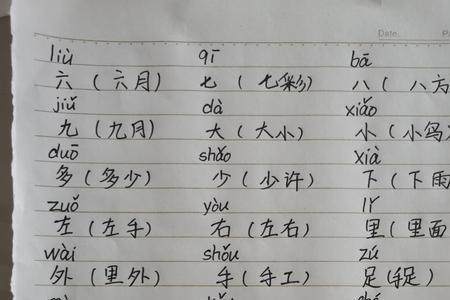 Date.
liù qī bā
六（六月） 七（七彩） 八（八方
jiǔ dà xiǎo
九（九月） 大（大小） 小（小鸟）
duō shǎo xià
多（多少） 少（少许） 下（下雨
zuǒ yòu lǐ
左（左手） 右（左右） 里（里面
wài shǒu zú
外（里外） 手（手工） 足（手足）